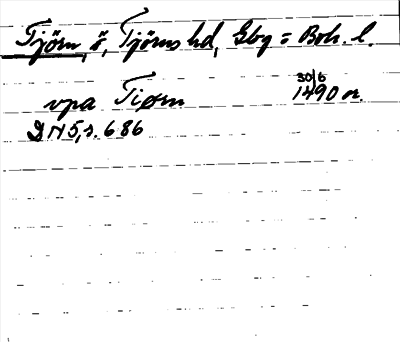 Tjörn, ö, Tjörns hd, Gbg = Boh. l.
vpa Tiørn 30/6 1490 or.
DN5, s. 686